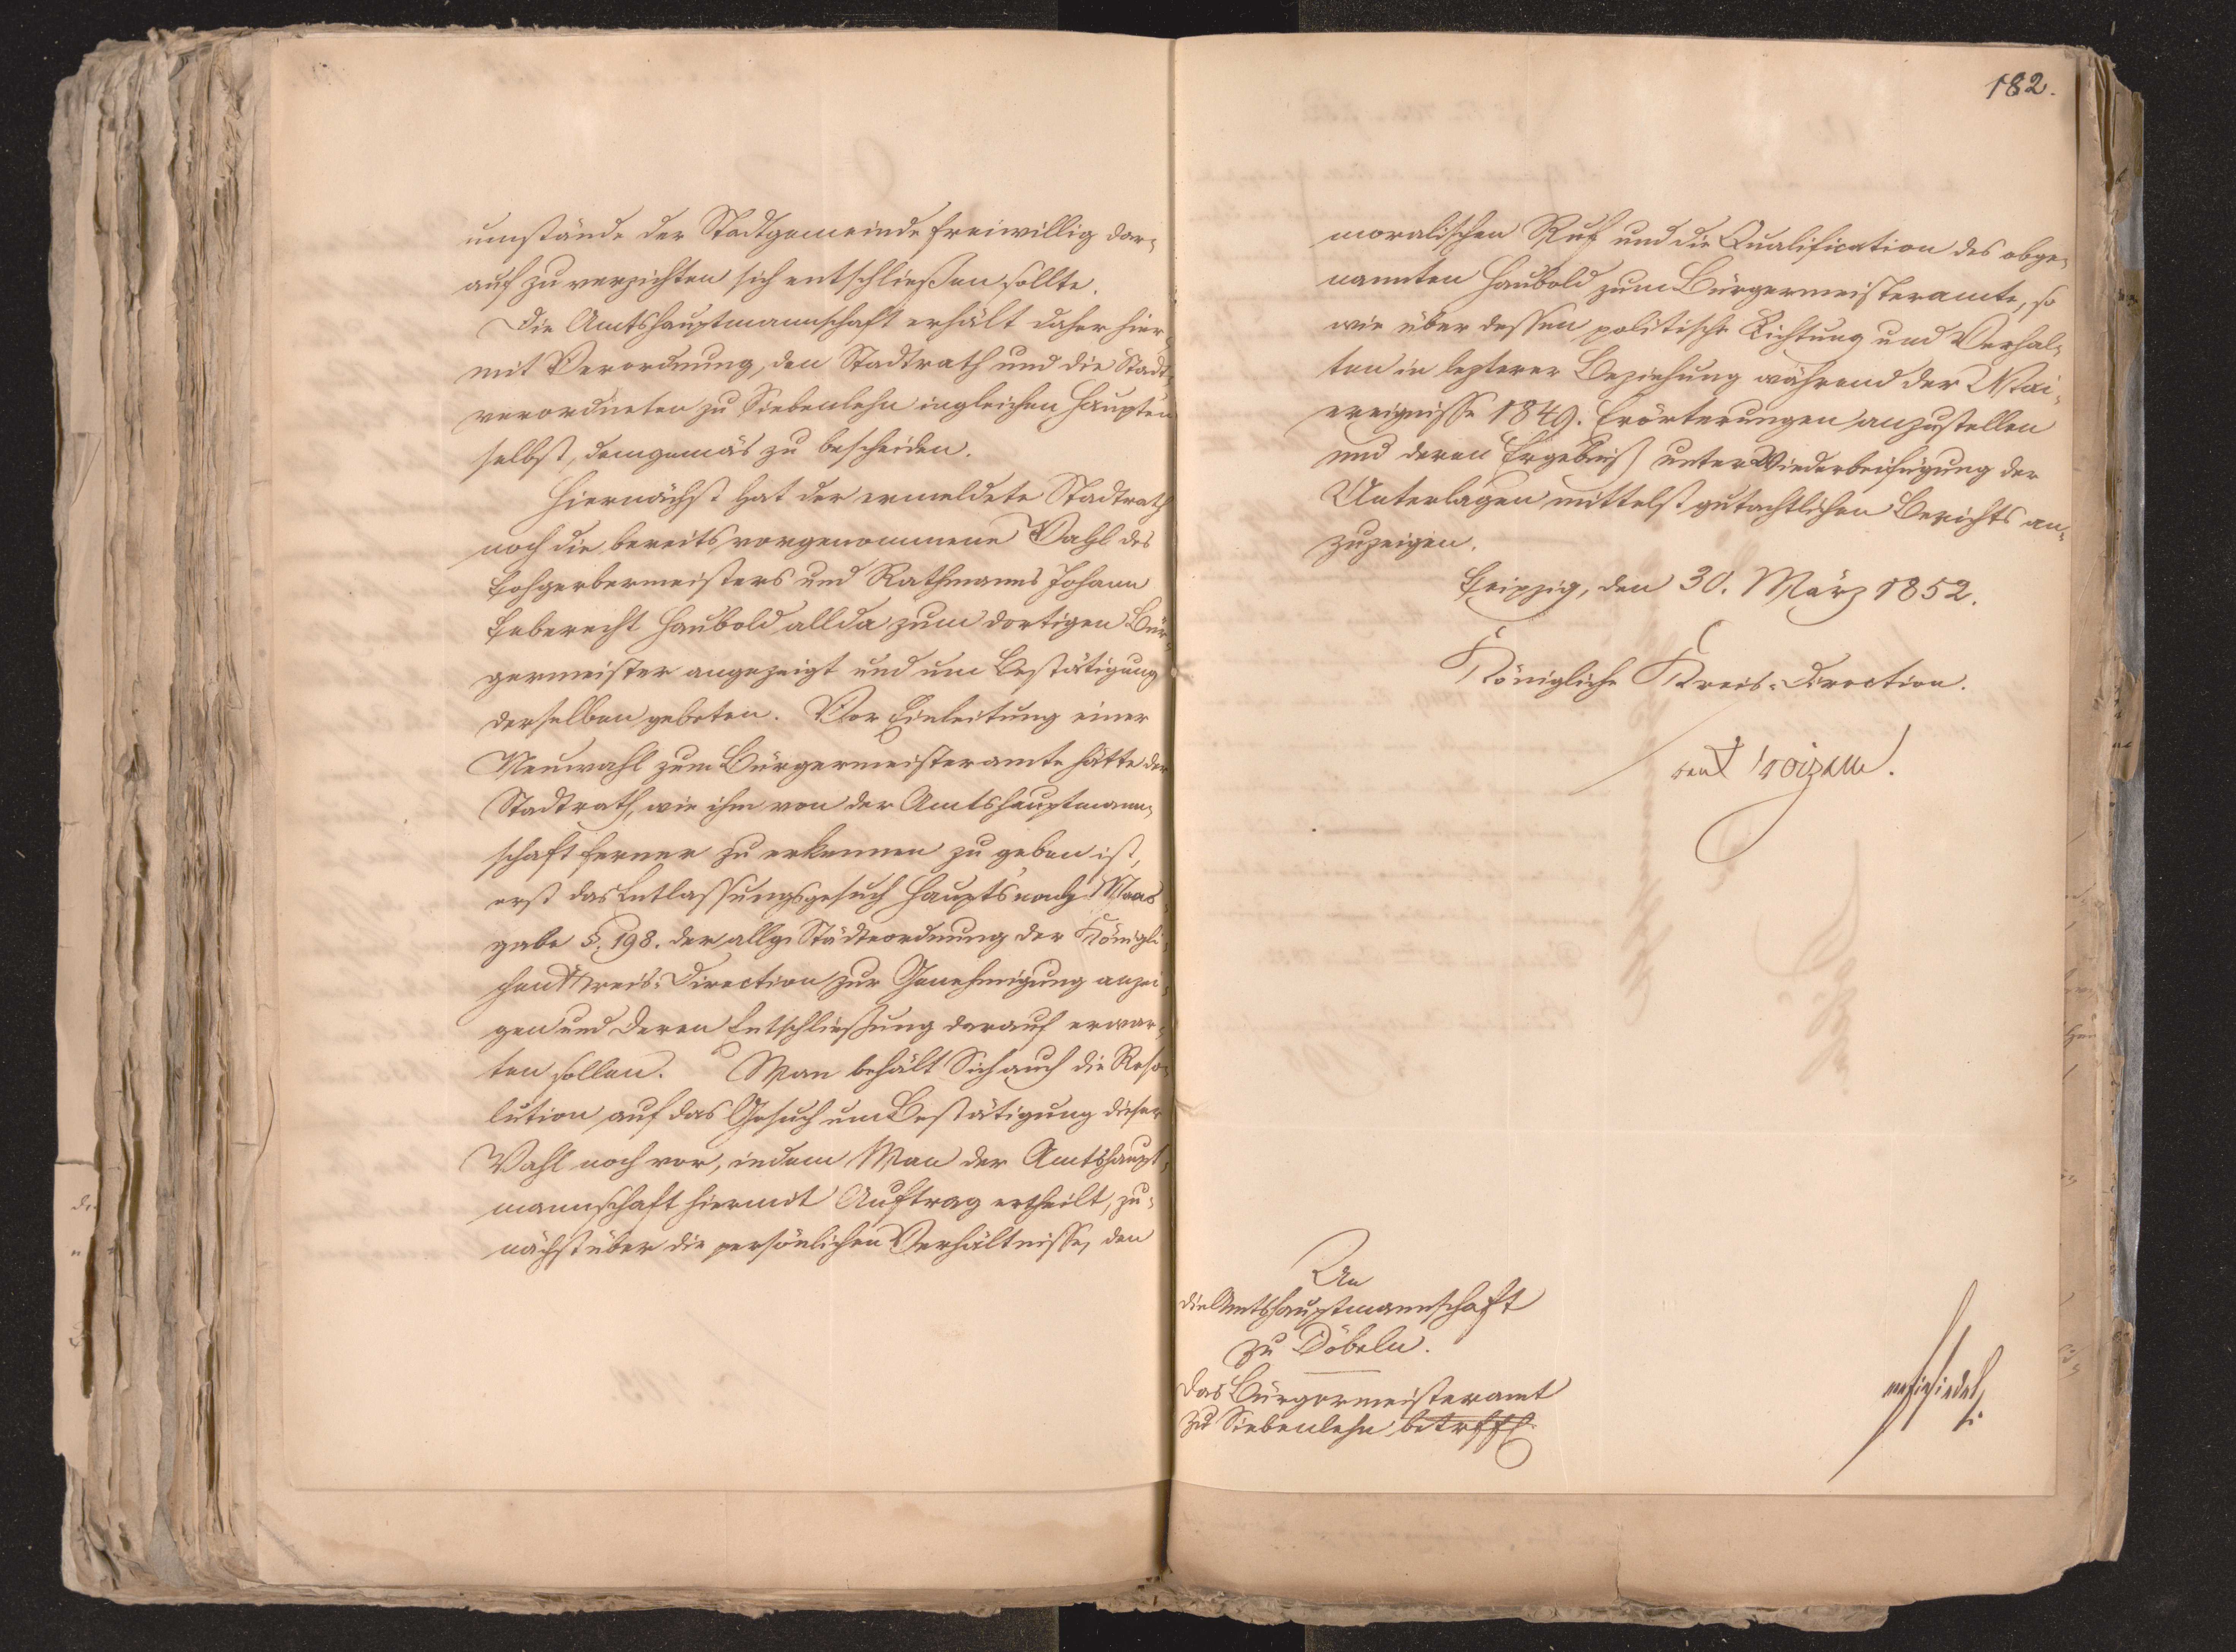 umstände der Stadtgemeinde freiwillig dar-
auf zu verzichten sich entschließen sollte.
Die Amtshauptmannschaft erhält daher hier-
mit Verordnung, den Stadtrath und die Stadt-
verordneten zu Siebenlehn ingleichen Haupten
selbst, demgemäs zu bescheiden.
Hiernächst hat der ermeldete Stadtrath
noch die bereits vorgenommene Wahl des
Lohgerbermeisters und Rathmanns Johann
Leberecht Haubold allda zum dortigen Bür-
germeister angezeigt und um Bestätigung
derselben gebeten. Vor Einleitung einer
Neuwahl zum Bürgermeisteramte hätte der
Stadtrath, wie ihm von der Amtshauptmann-
schaft ferner zu erkennen zu geben ist,
erst das Entlassungsgesuch Haupts nach Maas-
gabe §. 198. der allg. Städteordnung der Königli-
chen Kreis-Direction zur Genehmigung anzei-
gen und deren Entschließung darauf erwar-
ten sollen. Man behält Sich auch die Reso-
lution auf das Gesuch um Bestätigung dieser
Wahl noch vor, indem Man der Amtshaupt-
mannschaft hiermit Auftrag ertheilt, zu-
nächst über die persönlichen Verhältnisse, den
182.
moralischen Ruf und die Qualification des obge-
nannten Haubold zum Bürgermeisteramte, so
wie über dessen politische Richtung und Verhal-
ten in lezterer Beziehung während der Mai-
ereignisse 1849. Erörterungen anzustellen
und deren Ergebniß unter Wiederbeifügung der
Unterlagen mittelst gutachtlichen Berichts an-
zuzeigen.
Leipzig, den 30. März 1852.
Königliche Kreis-Direction.
An
die Amtshauptmannschaft
zu Döbeln.
Das Bürgermeisteramt
zu Siebenlehn betreff.